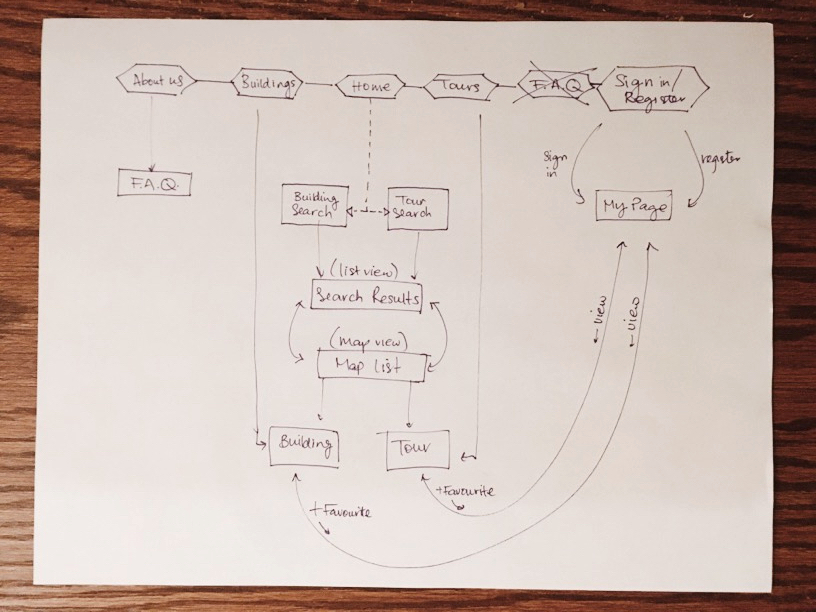 About us
Buildings
Home
Tours
F.A.Q
Sign in/
Register
F.A.Q.
Sign
in
register
Building
Search
Tour
Search
My Page
(list view)
Search Results
(map view)
Map List
view
view
Building
Tour
+Favourite
+Favourite